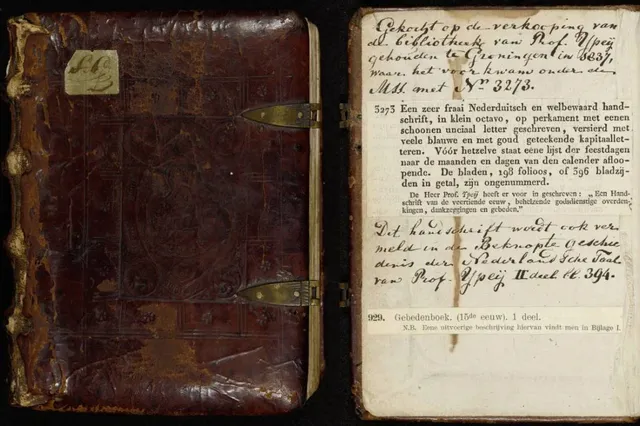 Gekocht op de verkooping van
de bibliotheek van Prof. Ypeij
gehouden te Groningen in 1837,
waar het voorkwam onder de
MSS. met No 3273.
3273 Een zeer fraai Nederduitsch en welbewaard hand-
schrift, in klein octavo, op perkament met eenen
schoonen unciaal letter geschreven, versierd met
vele blauwe en met goud geteekende kapitaallet-
teren. Vóór hetzelve staat eene lijst der feestdagen
naar de maanden en dagen van den calender afloo-
pende. De bladen, 198 folioos, of 396 bladzij-
den in getal, zijn ongenummerd.
De Heer Prof. Ypeij heeft er voor in geschreven: „Een Hand-
schrift van de veertiende eeuw, behelzende godsdienstige overden-
kingen, dankzeggingen en gebeden."
Dit handschrift wordt ook ver
meld in de Beknopte geschie
denis der Nederlandsche Taal
van Prof. Ypeij II deel bl. 394.
929. Gebedenboek. (15de eeuw). 1 deel.
N.B. Eene uitvoerige beschrijving hiervan vindt men in Bijlage I.